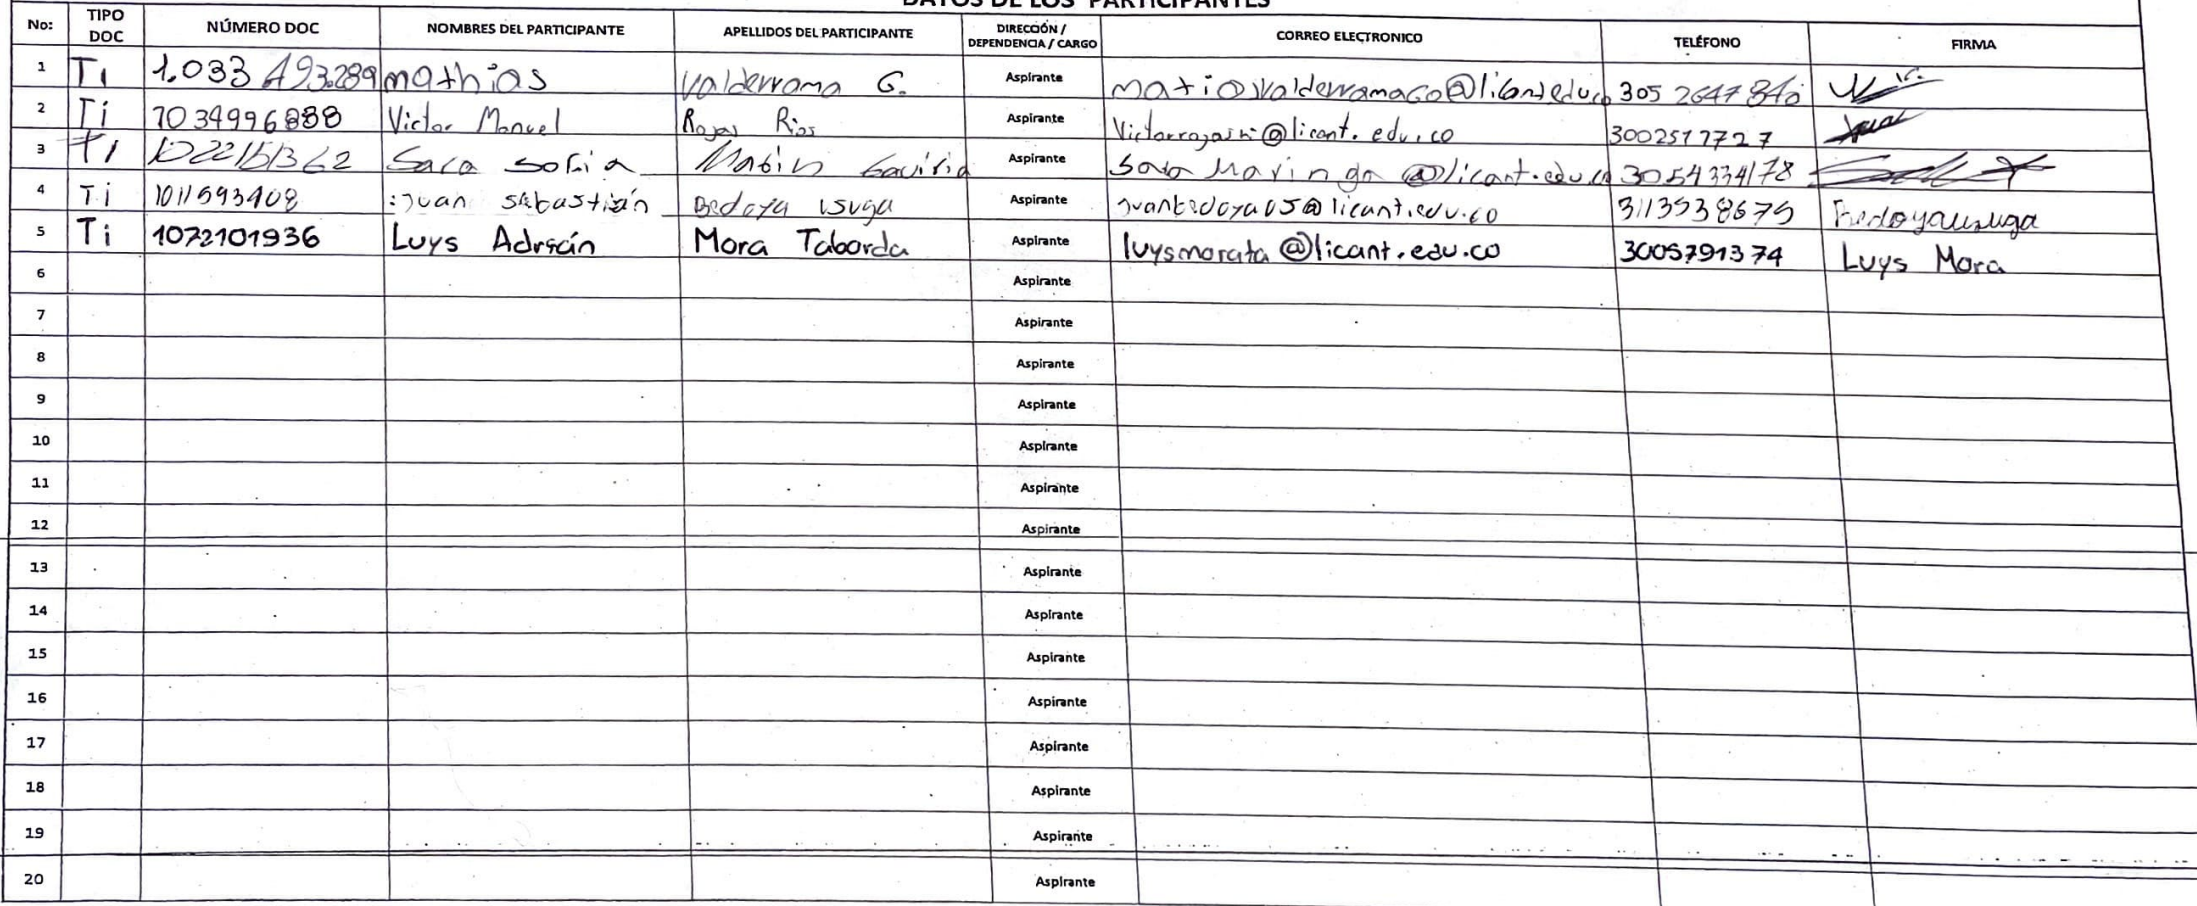 DATOS DE LOS PARTICIPANTES
No: TIPO DOC NÚMERO DOC NOMBRES DEL PARTICIPANTE APELLIDOS DEL PARTICIPANTE DIRECCIÓN / DEPENDENCIA / CARGO CORREO ELECTRONICO TELÉFONO FIRMA
1 Ti 1.033 493.289 mathias Valderrama G. Aspirante 305 2647840
2 Ti 1034996888 Victor Manuel Rojas Rios Aspirante Victorrojasri@licant.edu.co 3002517727
3 Ti 1022151362 Sara sofia Marin Gaviria Aspirante Sara Maringa @licant.edu.co 3054334178
4 Ti 1011593408 Juan sebastián Bedoya usuga Aspirante Juanbedoyaus@licant.edu.co 3113938679 Bedoyausuga
5 Ti 1072101936 Luys Adrián Mora Taborda Aspirante luysmorata@licant.edu.co 3005791374 Luys Mora
6 Aspirante
7 Aspirante
8 Aspirante
9 Aspirante
10 Aspirante
11 Aspirante
12 Aspirante
13 Aspirante
14 Aspirante
15 Aspirante
16 Aspirante
17 Aspirante
18 Aspirante
19 Aspirante
20 Aspirante